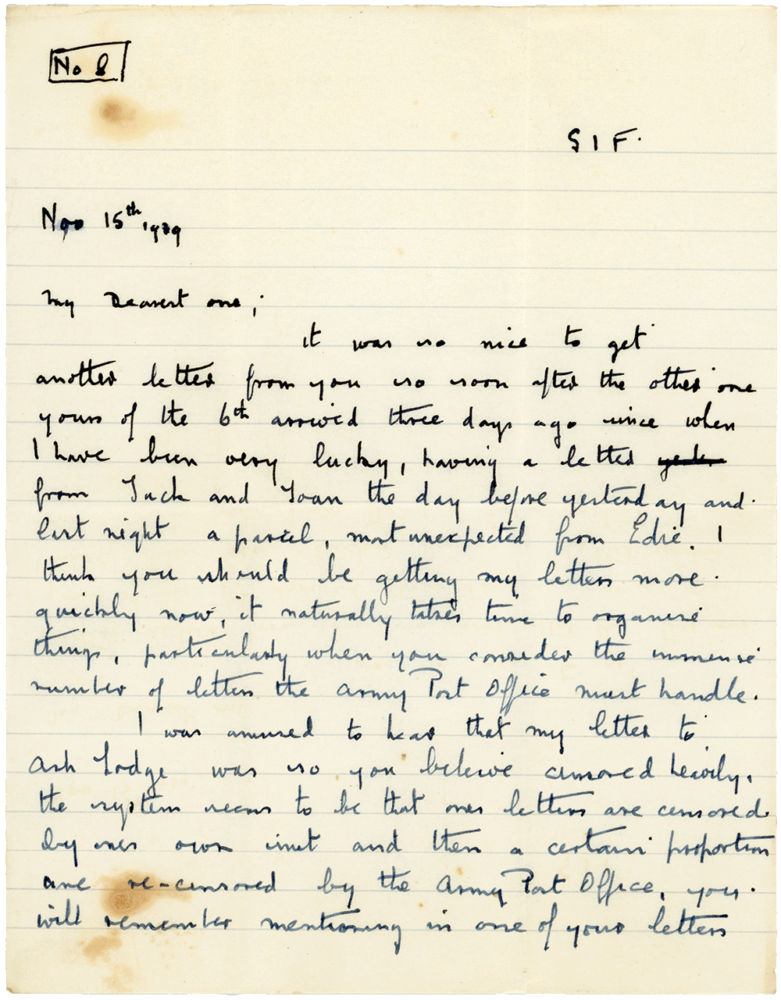 No 8
S I F.
Nov 15th 1939
My Dearest one,
it was so nice to get
another letter from you so soon after the other one
yours of the 6th arrived three days ago since when
I have been very lucky, having a letter
from Jack and Joan the day before yesterday and
last night a parcel, most unexpected from Edie. I
think you should be getting my letters more
quickly now, it naturally takes time to organise
things, particularly when you consider the immense
number of letters the Army Post Office must handle.
I was amused to hear that my letter to
Ash Lodge was so you believe censored heavily.
the system seems to be that ones letters are censored
by ones own unit and then a certain proportion
are re-censored by the Army Post Office, you
will remember mentioning in one of your letters